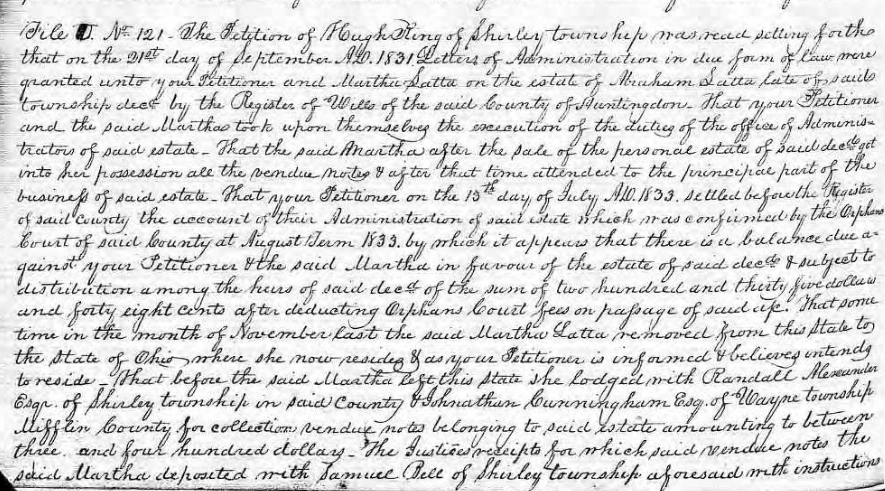 File D. No. 121 - The Petition of Hugh King of Shirley township was read setting forth
that on the 21st day of September A.D. 1831 Letters of Administration in due form of law were
granted unto your Petitioner and Martha Latta on the estate of Abraham Latta late of said
township decd. by the Register of Wills of the said County of Huntingdon - That your Petitioner
and the said Martha took upon themselves the execution of the duties of the office of Adminis=
trators of said estate - That the said Martha after the sale of the personal estate of said decd. got
into her possession all the vendue notes & after that time attended to the principal part of the
business of said estate - That your Petitioner on the 15th day of July A.D. 1833. settled before the Register
of said County the account of their Administration of said estate which was confirmed by the Orphans
Court of said County at August Term 1833. by which it appears that there is a balance due a=
gainst your Petitioner & the said Martha in favour of the estate of said decd. & subject to
distribution among the heirs of said decd. of the sum of two hundred and thirty five dollars
and forty eight cents after deducting Orphans Court fees on passage of said a/c. That some
time in the month of November last the said Martha Latta removed from this State to
the State of Ohio where she now resides & as your Petitioner is informed & believes intends
to reside - That before the said Martha left this State she lodged with Randall Alexander
Esqr. of Shirley township in said County & Johnathan Cunningham Esq. of Wayne township
Mifflin County for collection vendue notes belonging to said estate amounting to between
three and four hundred dollars - The Justices receipts for which said vendue notes the
said Martha deposited with Samuel Bell of Shirley township aforesaid with instructions